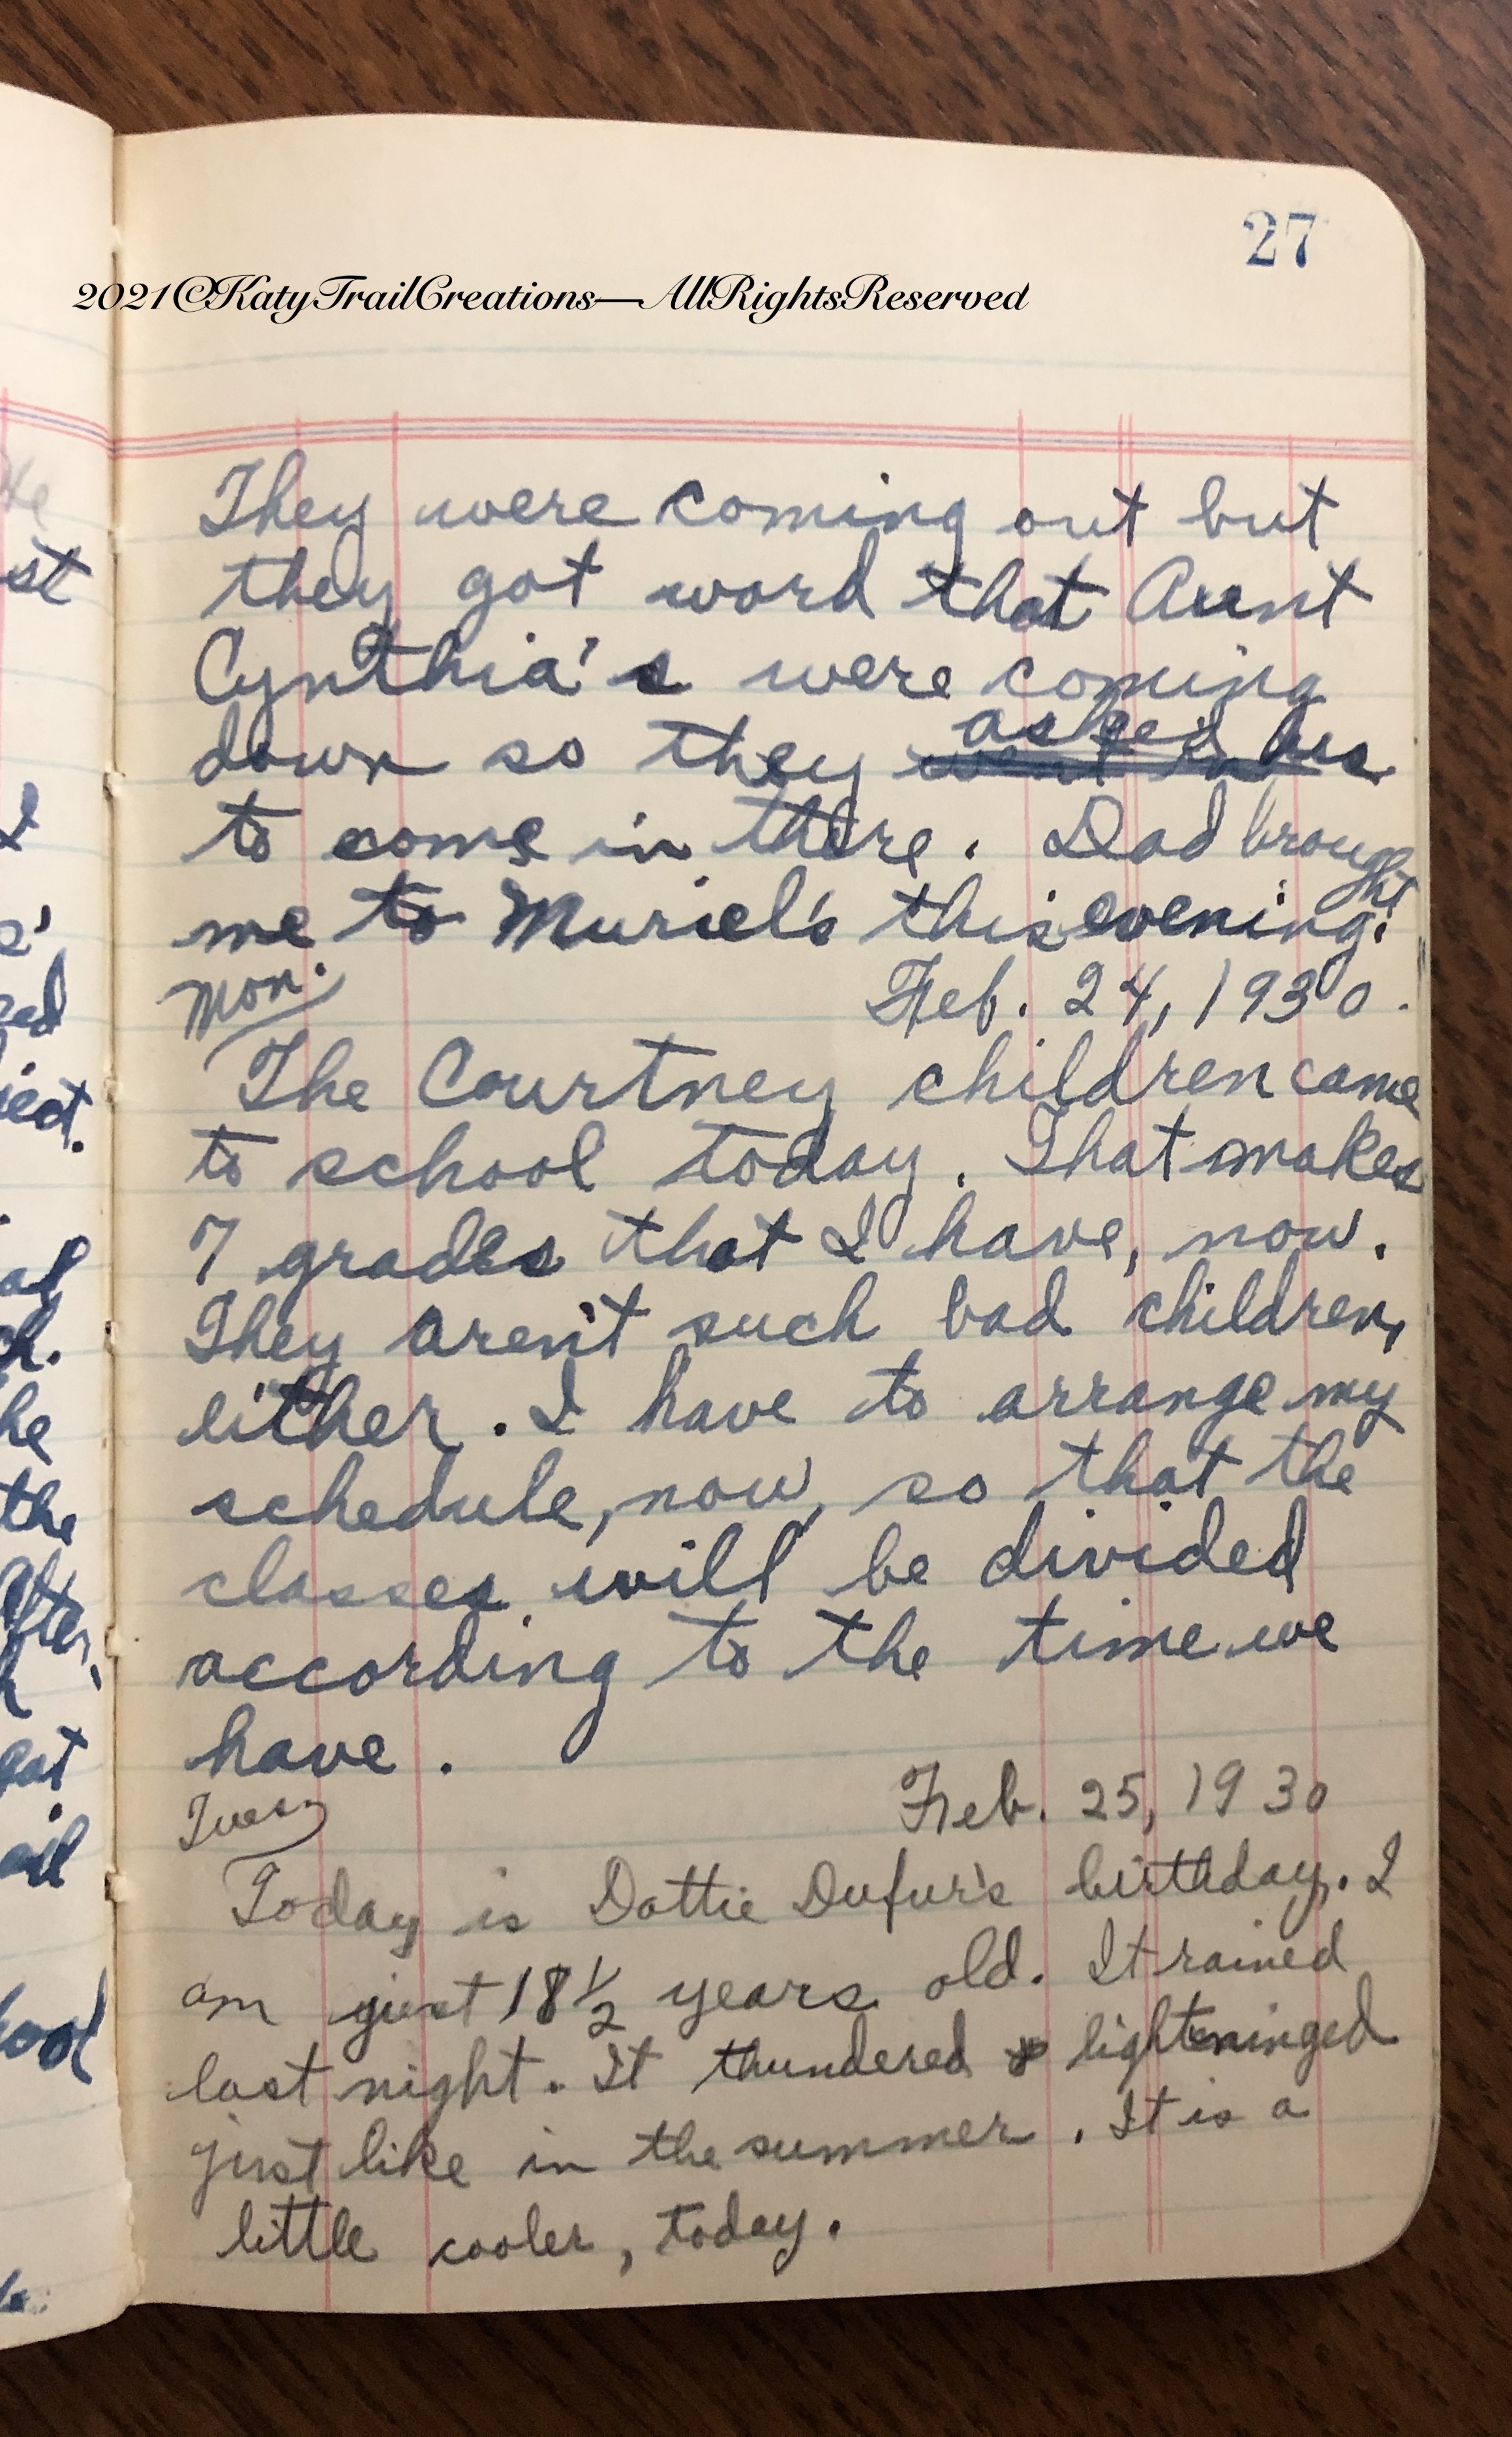 27
2021©KatyTrailCreations—AllRightsReserved
They were coming out but
they got word that Aunt
Cynthia's were coming
down so they asked us
to come in there. Dad brought
me to Muriel's this evening.
Mon. Feb. 24, 1930.
The Courtney children came
to school today. That makes
7 grades that I have, now.
They aren't such bad children,
either. I have to arrange my
schedule, now, so that the
classes will be divided
according to the time we
have.
Tues. Feb. 25, 1930
Today is Dottie Dufur's birthday. I
am just 18 1/2 years old. It rained
last night. It thundered & lighteninged
just like in the summer. It is a
little cooler, today.